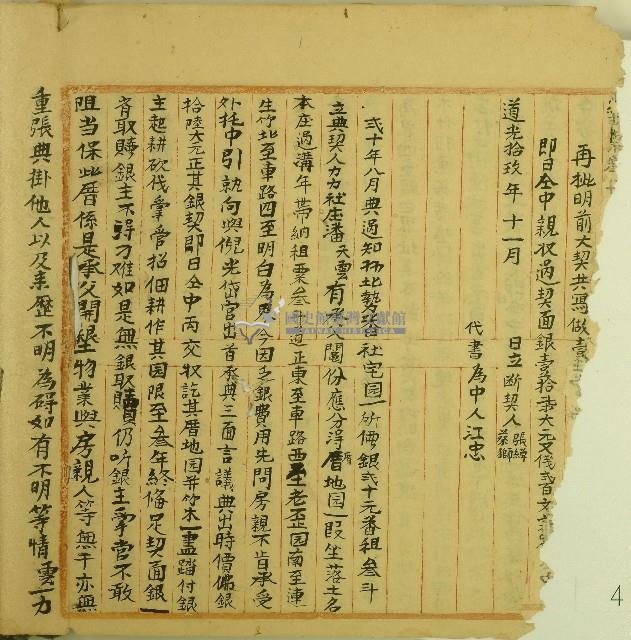 再批明前大契共寫做壹
即日仝中親收過契面銀壹拾大元又伐弍百文
道光拾玖年十一月　日立断契人
代書為中人江忠
弍十年八月典過知社宅园一所價銀弍十元番租叁斗
立典契人力力社庄潘天雲有闊份應分浮厝地园一段坐落土名
本庄過溝年帶納租粟叁道正東至車路西至老园南至連
生竹北至車路四至明白為界今因乏銀費用先問房親不肯承受
外托中引就向與倪光岱官出首承典三面言議典出時價佛銀
拾陸大元正其銀契即日仝中两交收訖其厝地园并竹木一盡踏付銀
主起耕砍伐掌管招佃耕作其园限至叁年終俻足契面銀一
齊取贖銀主不得刁难如是無銀取贖仍听銀主掌管不敢
阻当保此厝係是承父開墾物業與房親人等無干亦無
重張典掛他人以及来歷不明為碍如有不明等情雲一力
國史館臺灣文獻館
TAIWAN HISTORICA
4